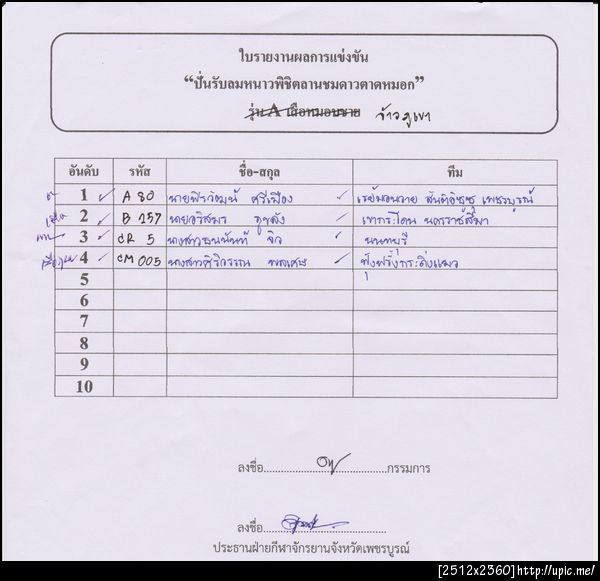 ใบรายงานผลการแข่งขัน
“ปั่นรับลมหนาวพิชิตลานชมดาวตาดหมอก”
รุ่น A เสือหมอบชาย จ้าวภูเขา
อันดับ รหัส ชื่อ-สกุล ทีม
1 A 80 นายพีรวัฒน์ ศรีเมือง เพชรบูรณ์
2 B 157 นายอริสมร นครราชสีมา
3 CR 5 นางสาวธนนันท์ จิว นนทบุรี
4 CM 005 นางสาวศิริวรรณ
5
6
7
8
9
10
ลงชื่อ...............................กรรมการ
ลงชื่อ...............................
ประธานฝ่ายกีฬาจักรยานจังหวัดเพชรบูรณ์
[2512x2360]http://upic.me/